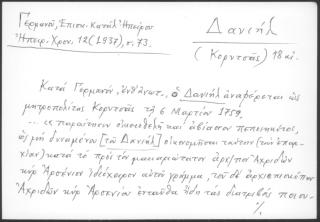 Γερμανοῦ, Ἐπισκ. Κατάλ. Ἠπείρου
Ἠπειρ. Χρον. 12 (1937), σ. 73.
Δανιήλ
(Κορυτσᾶς) 18 αἰ.
Κατὰ Γερμανόν, ἔνθ' ἀνωτ., ὁ Δανιὴλ ἀναφέρεται ὡς
μητροπολίτης Κορυτσᾶς τῇ 6 Μαρτίου 1759.
... παραίτησιν οἰκειοθελῆ καὶ ἀβίαστον πεποιηκότος,
ὡς μὴ δυναμένου [τοῦ Δανιὴλ] οἰκονομῆσαι ταύτην (τὴν ἐπαρ-
χίαν) κατὰ τὸ πρὸς τὸν μακαριώτατον ἀρχ/πον Ἀχριδῶν
κὺρ Ἀρσένιον ἰδιόχειρον αὐτοῦ γράμμα, τοῦ δὲ ἀρχιεπισκόπου
Ἀχριδῶν κὺρ Ἀρσενίου ἐνταῦθα ἤδη τὰς διατριβὰς ποιου-
./.